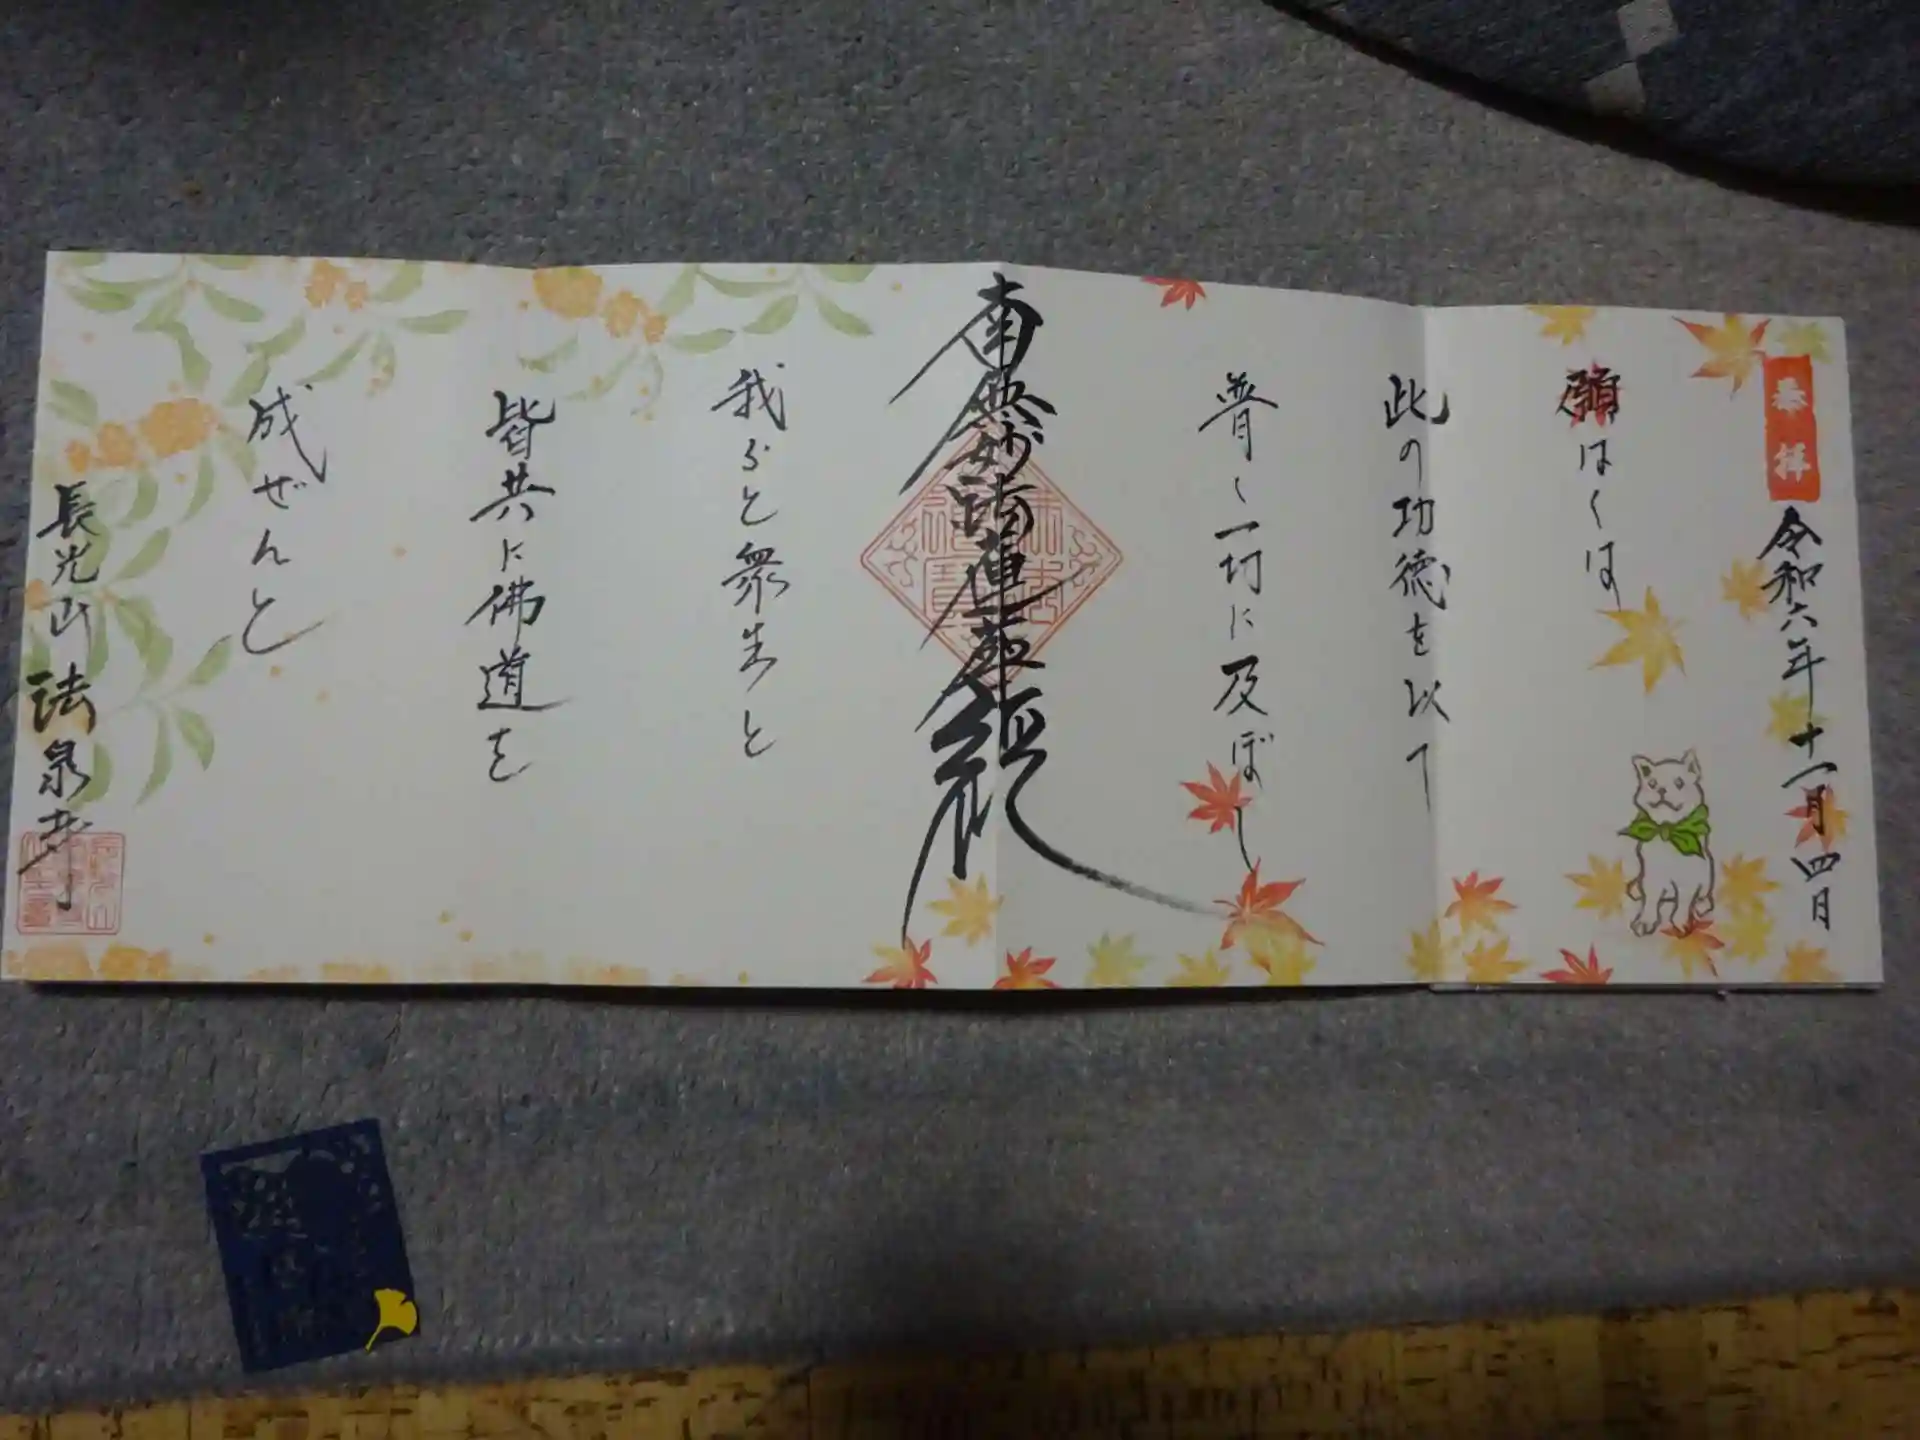 奉拝
令和六年十一月四日
願はくは
此の功徳を以て
普く一切に及ぼし
南無妙法蓮華経
我らと衆生と
皆共に佛道を
成ぜんと
長光山 法泉寺